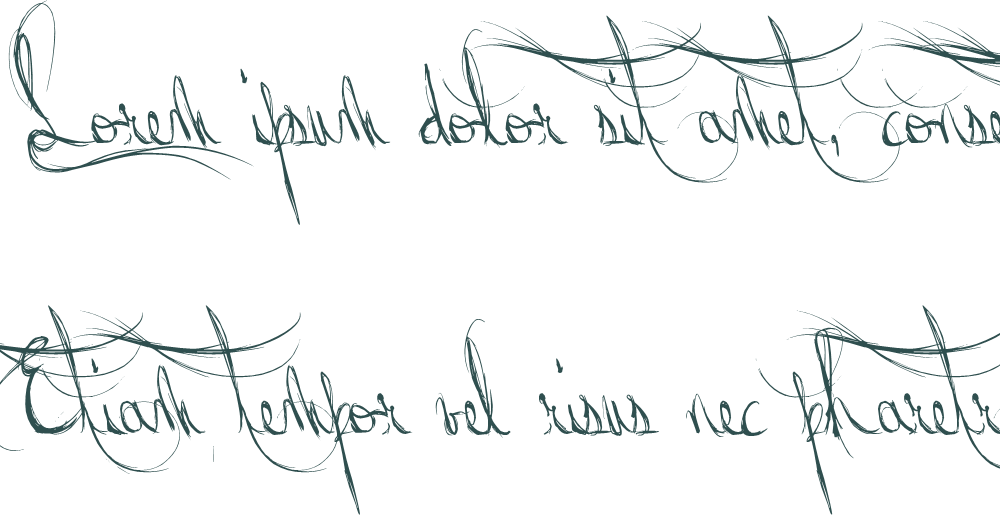 Lorem ipsum dolor sit amet, conse
Etiam tempor vel risus nec pharetr